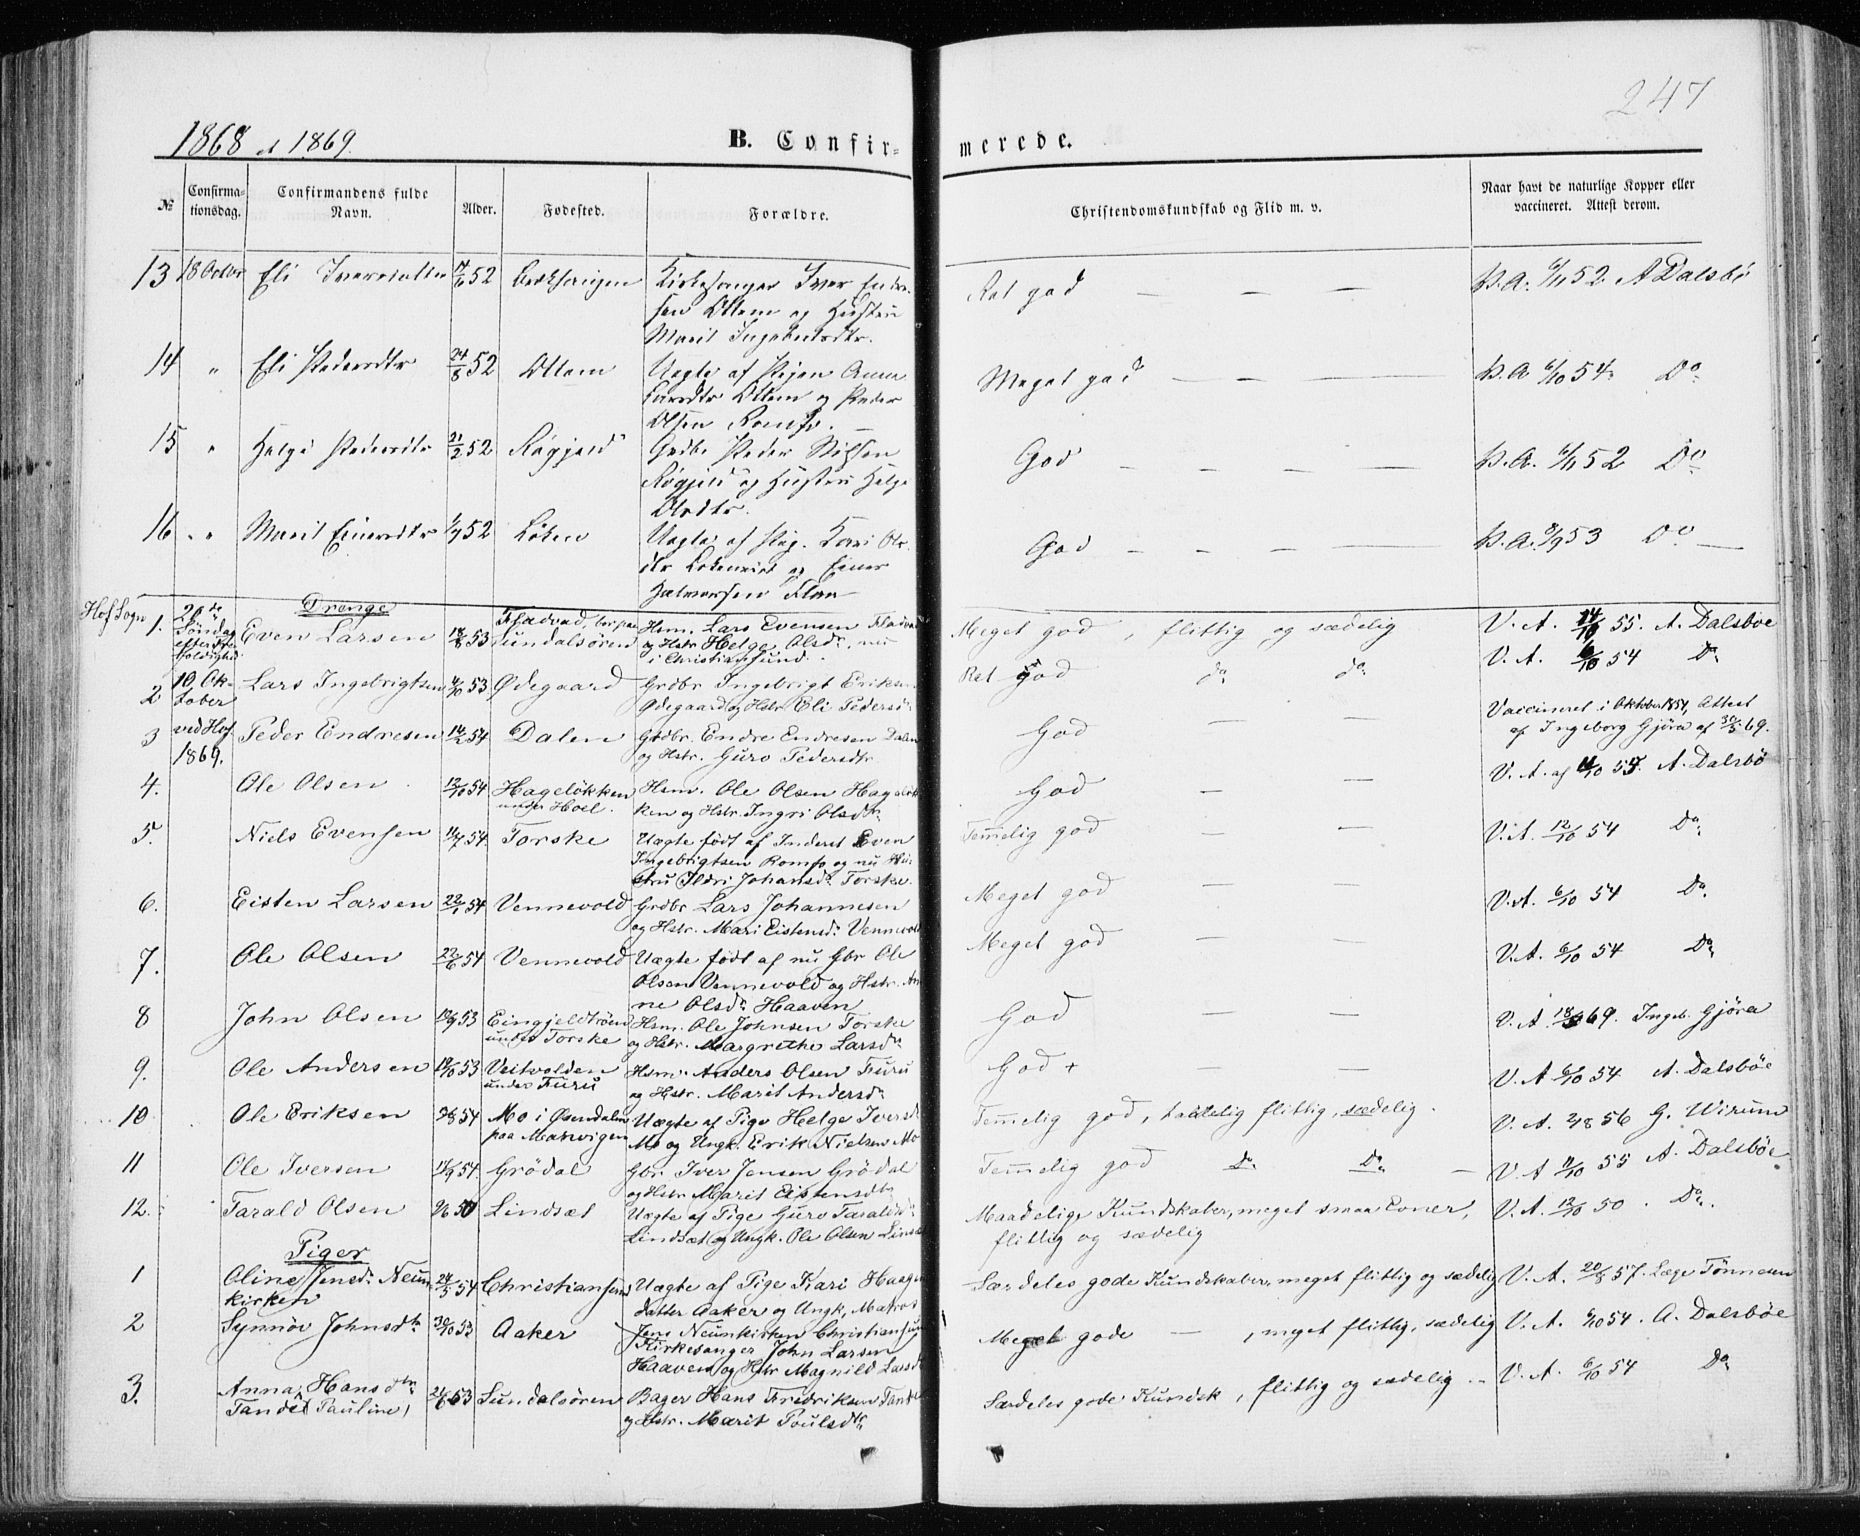 247
1868 et 1869.
B. Confirmerede.
№
Confirmationsdag.
Confirmandens fulde Navn.
Alder.
Fødested.
Forældre.
Christendomskundskab og Flid m. v.
Naar havt de naturlige Kopper eller vaccineret. Attest derom.
13 18 Octbr Eli 52 Kirkesanger Iver
Ottem og Hustru
Marit
Ret god — — — V.A. 6/11 52. A Dalsbö
14 " Eli Pedersdtr 24/8 52 Ottem Uægte af Pigen Anna
Ottem og Peder
Olsen Romfo.
Meget god — — — V.A 6/10 54. Do
15 " Helge Pedersdtr 21/2 52 Grdbr Peder Nilsen
og Hustru Helge
Olsdtr.
God — — — — V.A. 6/11 52 Do
16 " " Marit Einersdtr 1/7 52 Löken Uægte af Pig. Kari Ols-
dtr og Einer
Halvorsen Flaa
God — — — — V.A. 8/9 53 Do —
Hof Sogn
Drenge
1. 20de Söndag efter Trefoldighed Even Larsen 18/8 53 Fladvad, bor paa Sundalsören Hsm. Lars Evensen Fladvad
og Hstr Helge Olsdr, nu
i Christiansund.
Meget god, flittig og sædelig V. A. 14/10 55. A. Dalsböe
2 10 Oktober Lars Ingebrigtsen 53 Ødegaard Grdbr Ingebrigt Eriksen
Ødegaard og Hstr Eli Pedersdr
Ret god do do V. A. 6/10 54 Do
3 ved Hof 1869. Peder Endresen 14/2 54 Dalen Grdbr. Endre Endresen Dalen
og Hstr. Guro Pedersdtr
God — — Vaccineret i Oktober 1854, Attest
af Ingeborg Gjöra af 30/5 69.
4. Ole Olsen 12/10 54 Hagelökken under Hoel. Hsm. Ole Olsen Hagelök-
ken og Hstr. Ingri Olsdr.
God — — V. A. af 11/10 55. A. Dalsbö
5. Niels Evensen 11/7 54 Torske Uægte födt af Inderst Even
Ingebrigtsen Romfo og nu Hu-
stru Ildri Johansdr Torske.
Temelig god — — V.A. 12/10 54 Do
6. Eisten Larsen 22/1 54 Vennevold Grdbr Lars Johannesen
og Hstr. Mari Eistensdr Vennevold
Meget god — — V.A. 6/10 54 Do
7. Ole Olsen 22/6 54 Vennevold Uægte födt af nu Gbr Ole
Olsen Vennevold og Hstr. An-
ne Olsdr Haaven
Meget god — — V.A. 6/10 54 Do
8 John Olsen 53 under Torske Hsm. Ole Johnsen Torske
og Hstr. Margrethe Larsdr
God — — V. A 69. Ingeb. Gjöra
9. Ole Andersen 53 Veitvolden under Furu Hsm. Anders Olsen Furu
og Hstr. Marit Andersdr
God + — — V. A 6/10 54 A. Dalsböe
10 Ole Eriksen 54 Mo i Øxendalen paa Uægte af Pige Helge Iversdr
Mo og Ungk. Erik Nielsen Mo
Temelig god, taalelig flittig, sædelig. V. A. 56 G. Wirum
11 Ole Iversen 54. Grödal Gbr. Iver Jensen Grödal
og Hstr Marit Eistensdtr
Temelig god Do Do — V. A 11/10 55 A. Dalsböe
12. Tarald Olsen 50 Lindsæt Uægte af Pige Guro Taraldsdr
Lindsæt og Ungk. Ole Olsen Linsæt
Maadelige Kundskaber, meget smaa Evner,
flittig og sædelig
V. A. 12/10 50. Do.
Piger
1 Oline Jensdr. Neumkirken 24/5 54 Christiansund Uægte af Pige Kari Haagen
datter Aaker og Ungk, Matros
Jens Neumkirken Christiansund
Særdeles gode Kundskaber, meget flittig og sædelig V. A. 20/8 57. Læge Tönnesen
2 Synnöv Johnsdtr 30/10 53 Aaker Kirkesanger John Larsen
Haaven og Hstr Magnild Larsdr
Meget gode — , meget flittig, sædelig V. A. 6/10 54. A. Dalsböe
3. Anna Hansdtr Tande (Pauline) 53 Sundalsören Bager Hans Fredriksen Tande
og Hstr. Marit Poulsdtr
Særdeles gode Kundsk, flittig og sædelig V. A. 6/10 54 Do